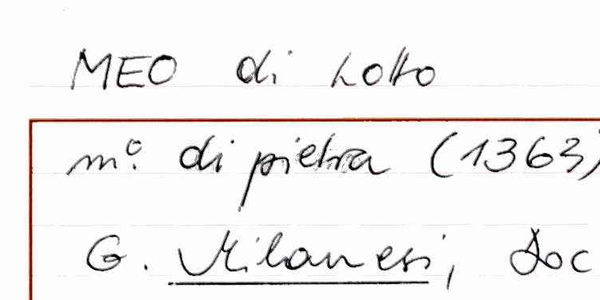 MEO di Lotto
m.º di pietra (1363)
G. Milanesi, Doc